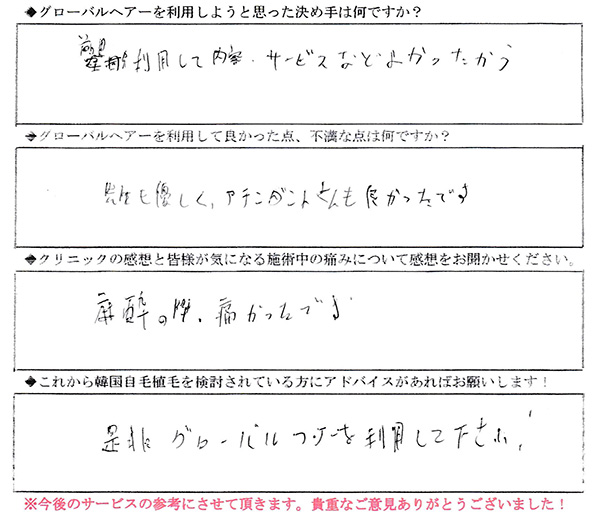 ◆グローバルヘアーを利用しようと思った決め手は何ですか？
利用して内容・サービスなどよかったから
◆グローバルヘアーを利用して良かった点、不満な点は何ですか？
先生も優しく、アテンダントさんも良かったです
◆クリニックの感想と皆様が気になる施術中の痛みについて感想をお聞かせください。
麻酔の際、痛かったです
◆これから韓国自毛植毛を検討されている方にアドバイスがあればお願いします！
是非グローバルツアーを利用して下さい！
※今後のサービスの参考にさせて頂きます。貴重なご意見ありがとうございました！